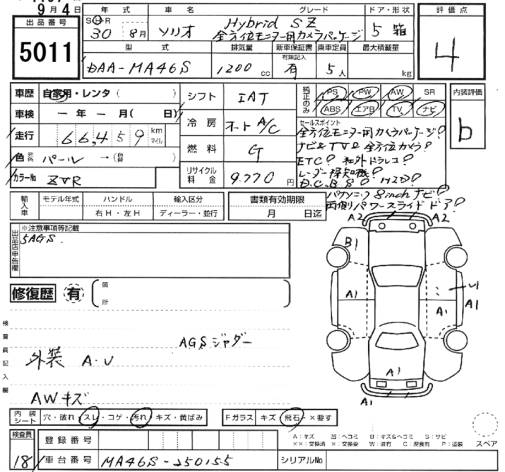 9月4日
出品番号
5011
年式 車名 グレード ドア・形状 評価点
S H R
30 8月 ソリオ Hybrid SZ 5 箱
全方位モニター用カメラパッケージ
4
型式 排気量 新車保証書 乗車定員 最大積載量
有効記入
DAA-MA46S 1200 cc 有 5人 kg
車歴 自家用・レンタ( )
車検 一年一月( 日)
走行 66,459 km マイル
色 パール →( )
カラーNo ZVR
シフト IAT
冷房 オートA/C
燃料 G
リサイクル料金 9,770円
純正のみ PS PW AW SR
ABS エアB TV ナビ
内装評価
b
セールスポイント
全方位モニター用カメラパッケージ!
ナビ&TV&全方位カメラ!
ETC! 社外ドラレコ!
レーダー探知機!
D.C.B.S! HID!
パイオニア 8inchナビ!
両側パワースライドドア!
輸入車 モデル年式 ハンドル 輸入区分
右H・左H ディーラー・並行
書類有効期限
月 日迄
出品店申告欄
※注意事項等記載
5AGS.
修復歴 有 箇所
検査員記入欄
AGSジャダー
外装 A・U
AWキズ
A2 A2
B1
A1 A1
A1
A1
内装シート 穴・破れ・スレ・コゲ・汚れ・キズ・黄ばみ
Fガラス キズ・飛石・×要す
検査員
18
登録番号
車台番号 MA46S-250155
シリアルNo
A:キズ
スペア